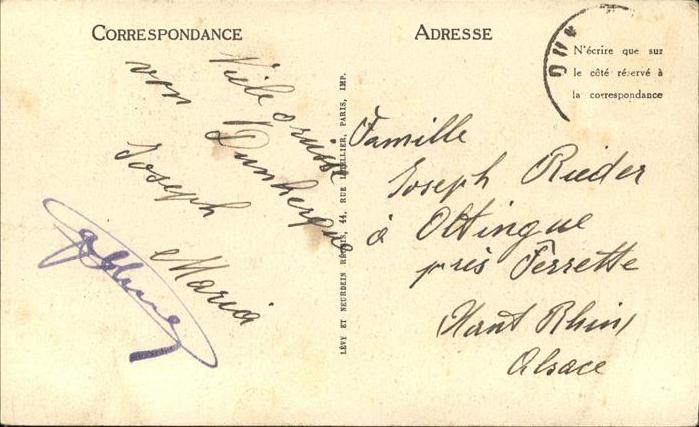 CORRESPONDANCE
ADRESSE
N'écrire que sur
le côté réservé à
la correspondance
Viele
von Dunkerque
Joseph
Maria
LÉVY ET NEURDEIN RÉUNIS, 44, RUE LETELLIER, PARIS, IMP.
Famille
Joseph Rieder
à Oltingue
près Ferrette
Haut Rhin
Alsace